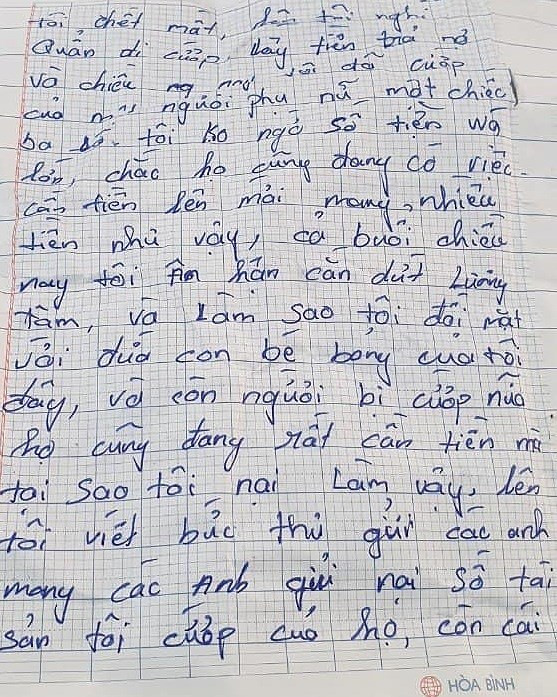 tôi, chết mất, lên tôi nghĩ
Quẩn đi cướp, lấy tiền trả nợ
và chiều tôi đã cướp
của người phụ nữ một chiếc
ba tôi ko ngờ số tiền wá
lớn, chắc họ cũng đang có việc
cần tiền lên mới mang, nhiều
tiền như vậy, cả buổi chiều
nay tôi ân hận cắn dứt Lương
tâm, và Làm sao tôi đối mặt
với đứa con bé bỏng của tôi
đây, và còn người bị cướp nữa
họ cũng đang rất cần tiền mà
tại sao tôi nại Làm vậy, lên
tôi viết bức thư gửi các anh
mong các Anh gửi nại số tài
sản tôi cướp của họ, còn cái
HÒA BÌNH